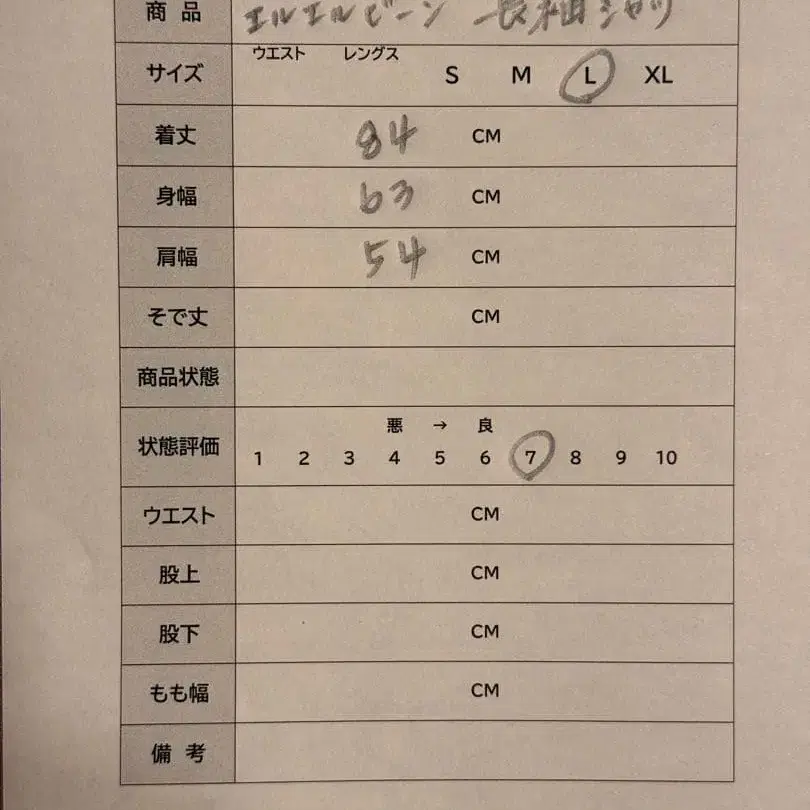 商品 エルエルビーン 長袖シャツ
サイズ ウエスト レングス S M L XL
着丈 84 CM
身幅 63 CM
肩幅 54 CM
そで丈 CM
商品状態
悪 → 良
状態評価 1 2 3 4 5 6 7 8 9 10
ウエスト CM
股上 CM
股下 CM
もも幅 CM
備考